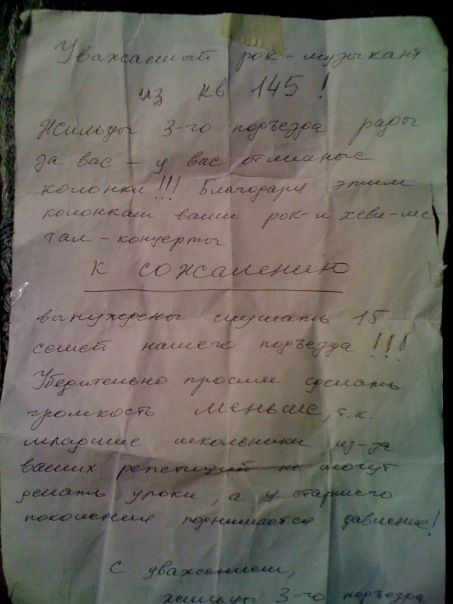 Уважаемый рок-музыкант
из кв 145!
Жильцы 3-го подъезда рады
за вас – у вас отличные
колонки!!! Благодаря этим
колонкам ваши рок-и хеви-ме
тал-концерты
К СОЖАЛЕНИЮ
вынуждены слушать 15
семей нашего подъезда!!!
Убедительно просим сделать
громкость меньше, т.к.
младшие школьники из-за
ваших репетиций не могут
делать уроки, а у старшего
поколения поднимается давление!
С уважением,
жильцы 3-го подъезда